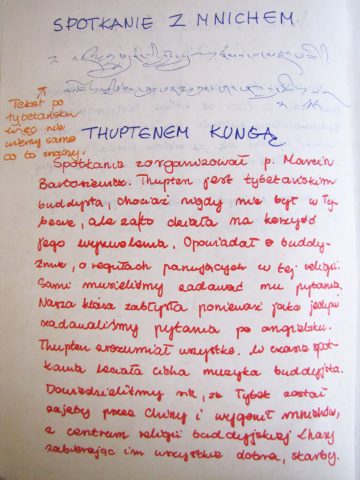 SPOTKANIE Z MNICHEM
Tekst po
tybetańsku
czego nie
wiemy same
co to znaczy.
THUPTENEM KUNGĄ
Spotkanie zorganizował p. Marcin
Bartosiewicz. Thupten jest tybetańskim
buddystą, chociaż nigdy nie był w Ty-
becie, ale za to działa na korzyść
jego wyzwolenia. Opowiadał o buddy-
zmie, o regułach panujących w tej religii.
Sami musieliśmy zadawać mu pytania.
Nasza klasa zabłysła ponieważ jako jedyni
zadawaliśmy pytania po angielsku.
Thupten zrozumiał wszystko. W czasie spot-
kania leciała cicha muzyka buddyjska.
Dowiedzieliśmy się, że Tybet został
zajęty przez Chiny i wygonił mnichów,
a centrum religii buddyjskiej Lhasy
zabierając im wszystkie dobra, skarby.